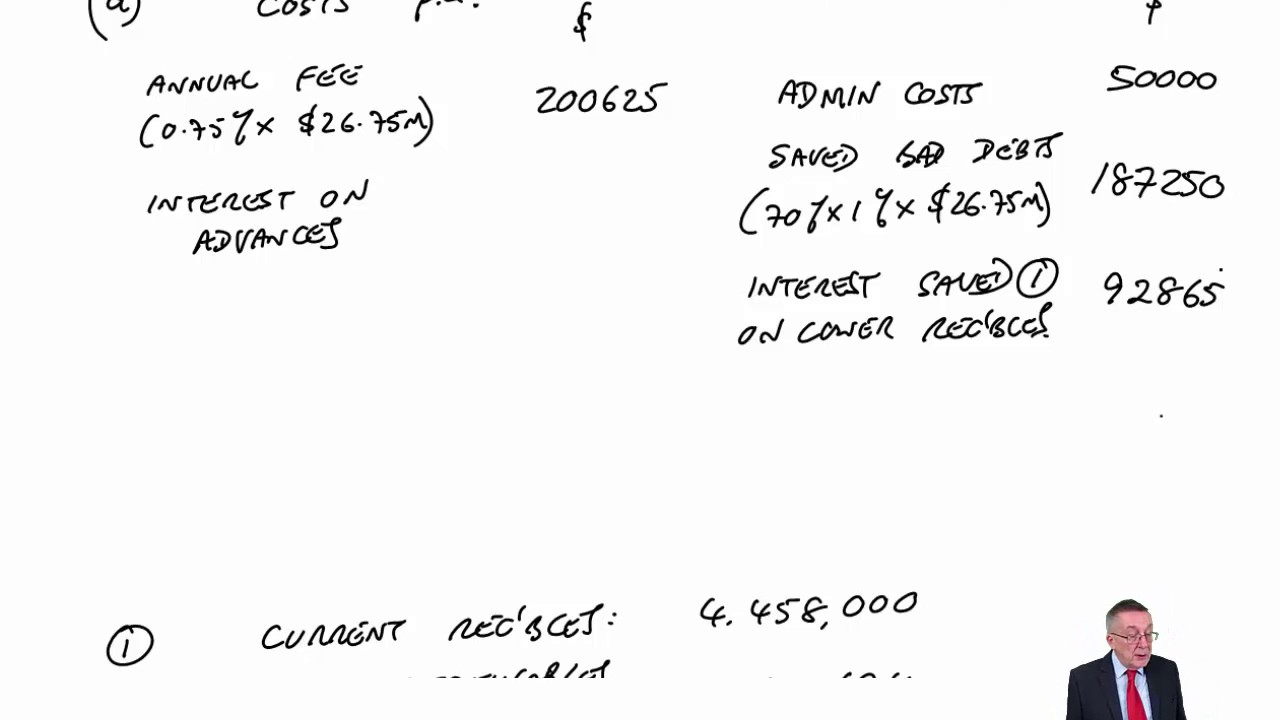 (a) COSTS p.a.
$ $
ANNUAL FEE
(0.75% x $26.75M) 200625
INTEREST ON
ADVANCES
ADMIN COSTS 50000
SAVED BAD DEBTS
(70% x 1% x $26.75M) 187250
INTEREST SAVED ① 92865
ON LOWER REC'BLES.
① CURRENT REC'BLES: 4.458,000